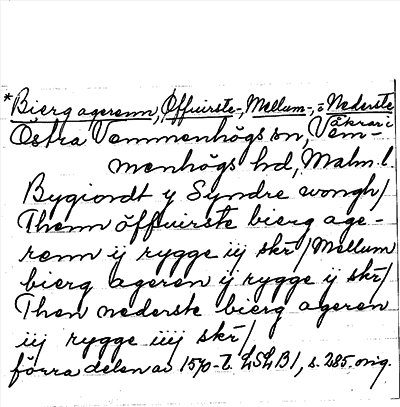 *Bierg agerenn, Öffuirste-, Mellum-, o Nederste
Östra Vemmenhögs sn, Våkrar i Vem-
menhögs hd, Malm. l.
Bygiondt y Syndre wongh/
Thenn öffuirste bierg age-
renn ij rygge iij skr/ Mellum
bierg ageren ij rygge ij skr/
Then nederste bierg ageren
iij rygge iiij skr/
förra delen av 1570-t. LSLB1, s. 285. orig.